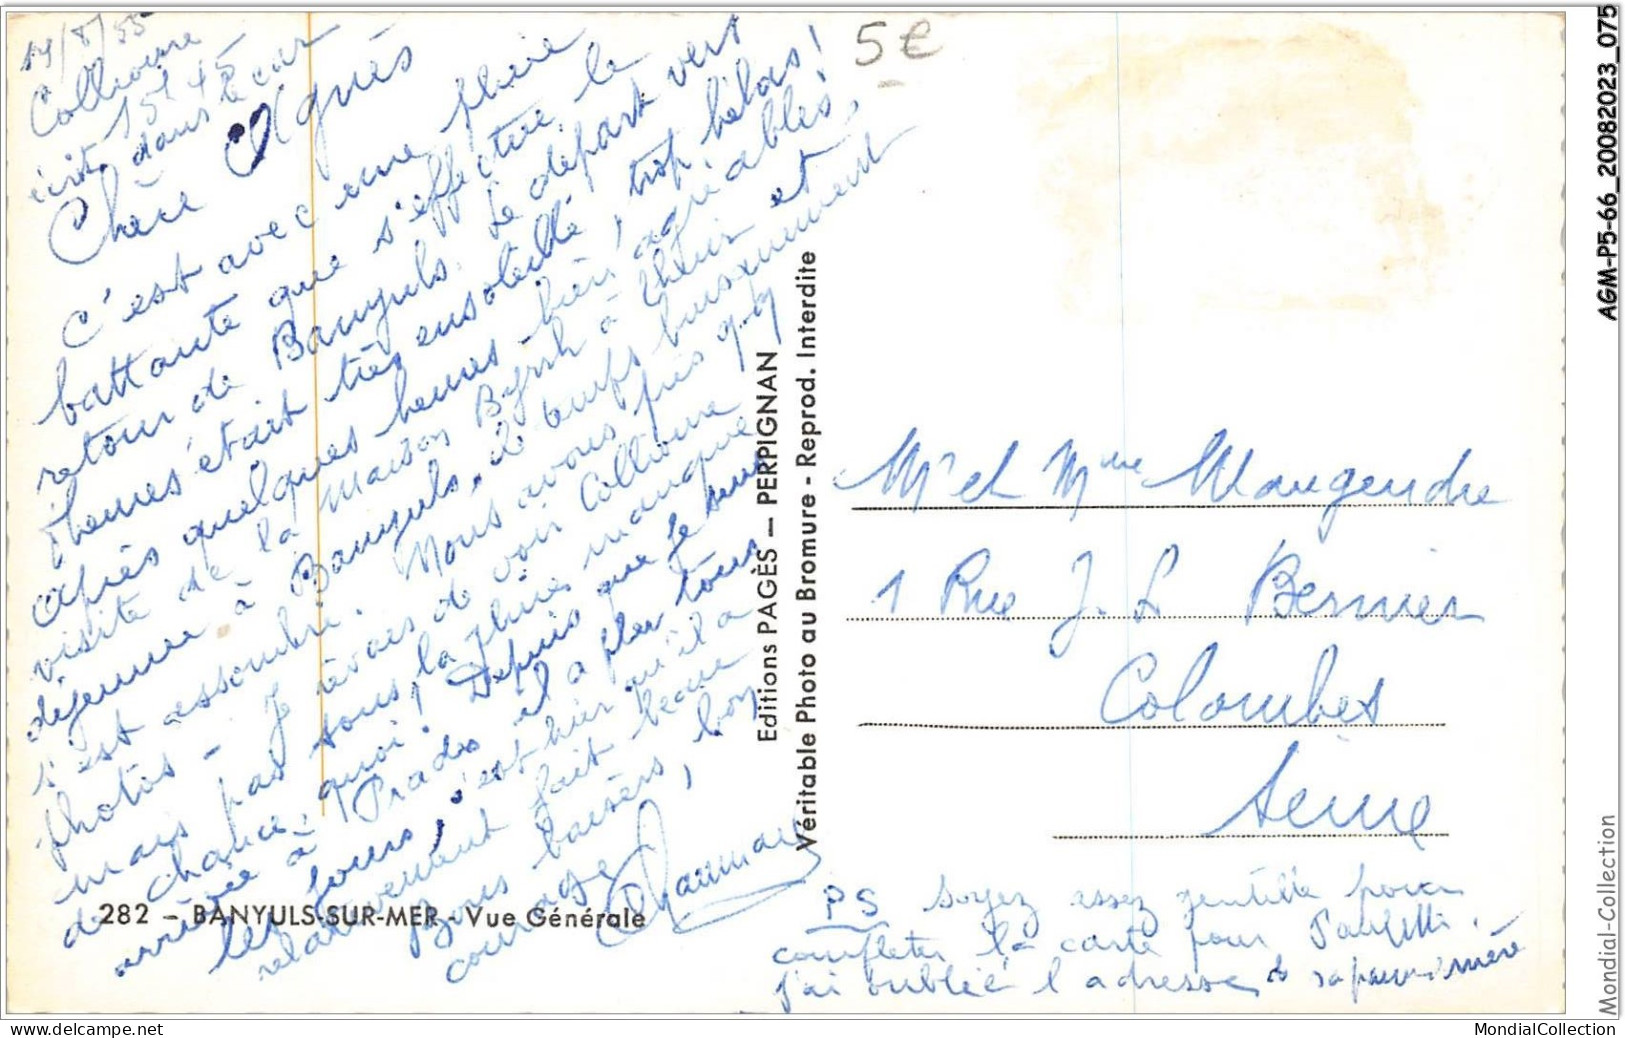 14/8/55
Collioure
15h45
écrit dans le car
Chère Agnès
C'est avec une pluie
battante que s'effectue le
retour de Banyuls. Le départ vers
heures était très ensoleillé, trop hélas!
après quelques heures bien agréables,
visite de la Maison Byrrh à Thuir et
déjeuner à Banyuls, le temps brusquement
s'est assombri. Nous avons pris qq
photos - Je rêvais de voir Collioure
mais pas sous la pluie, manque
de chance, quoi! Depuis que je suis
arrivée à Prades il a plu tous
les jours, c'est hier qu'il a
relativement fait beau
Bons baisers, bon
courage
282 - BANYULS-SUR-MER - Vue Générale
Editions PAGÈS - PERPIGNAN
Véritable Photo au Bromure - Reprod. Interdite
5€
Mr et Mme Maugendre
1 Rue J. L Bernier
Colombes
Seine
PS Soyez assez gentille pour
compléter la carte pour
j'ai oublié l'adresse de sa mère
AGM-P5-66_20082023_075
Mondial-Collection
delcampe.net
MondialCollection